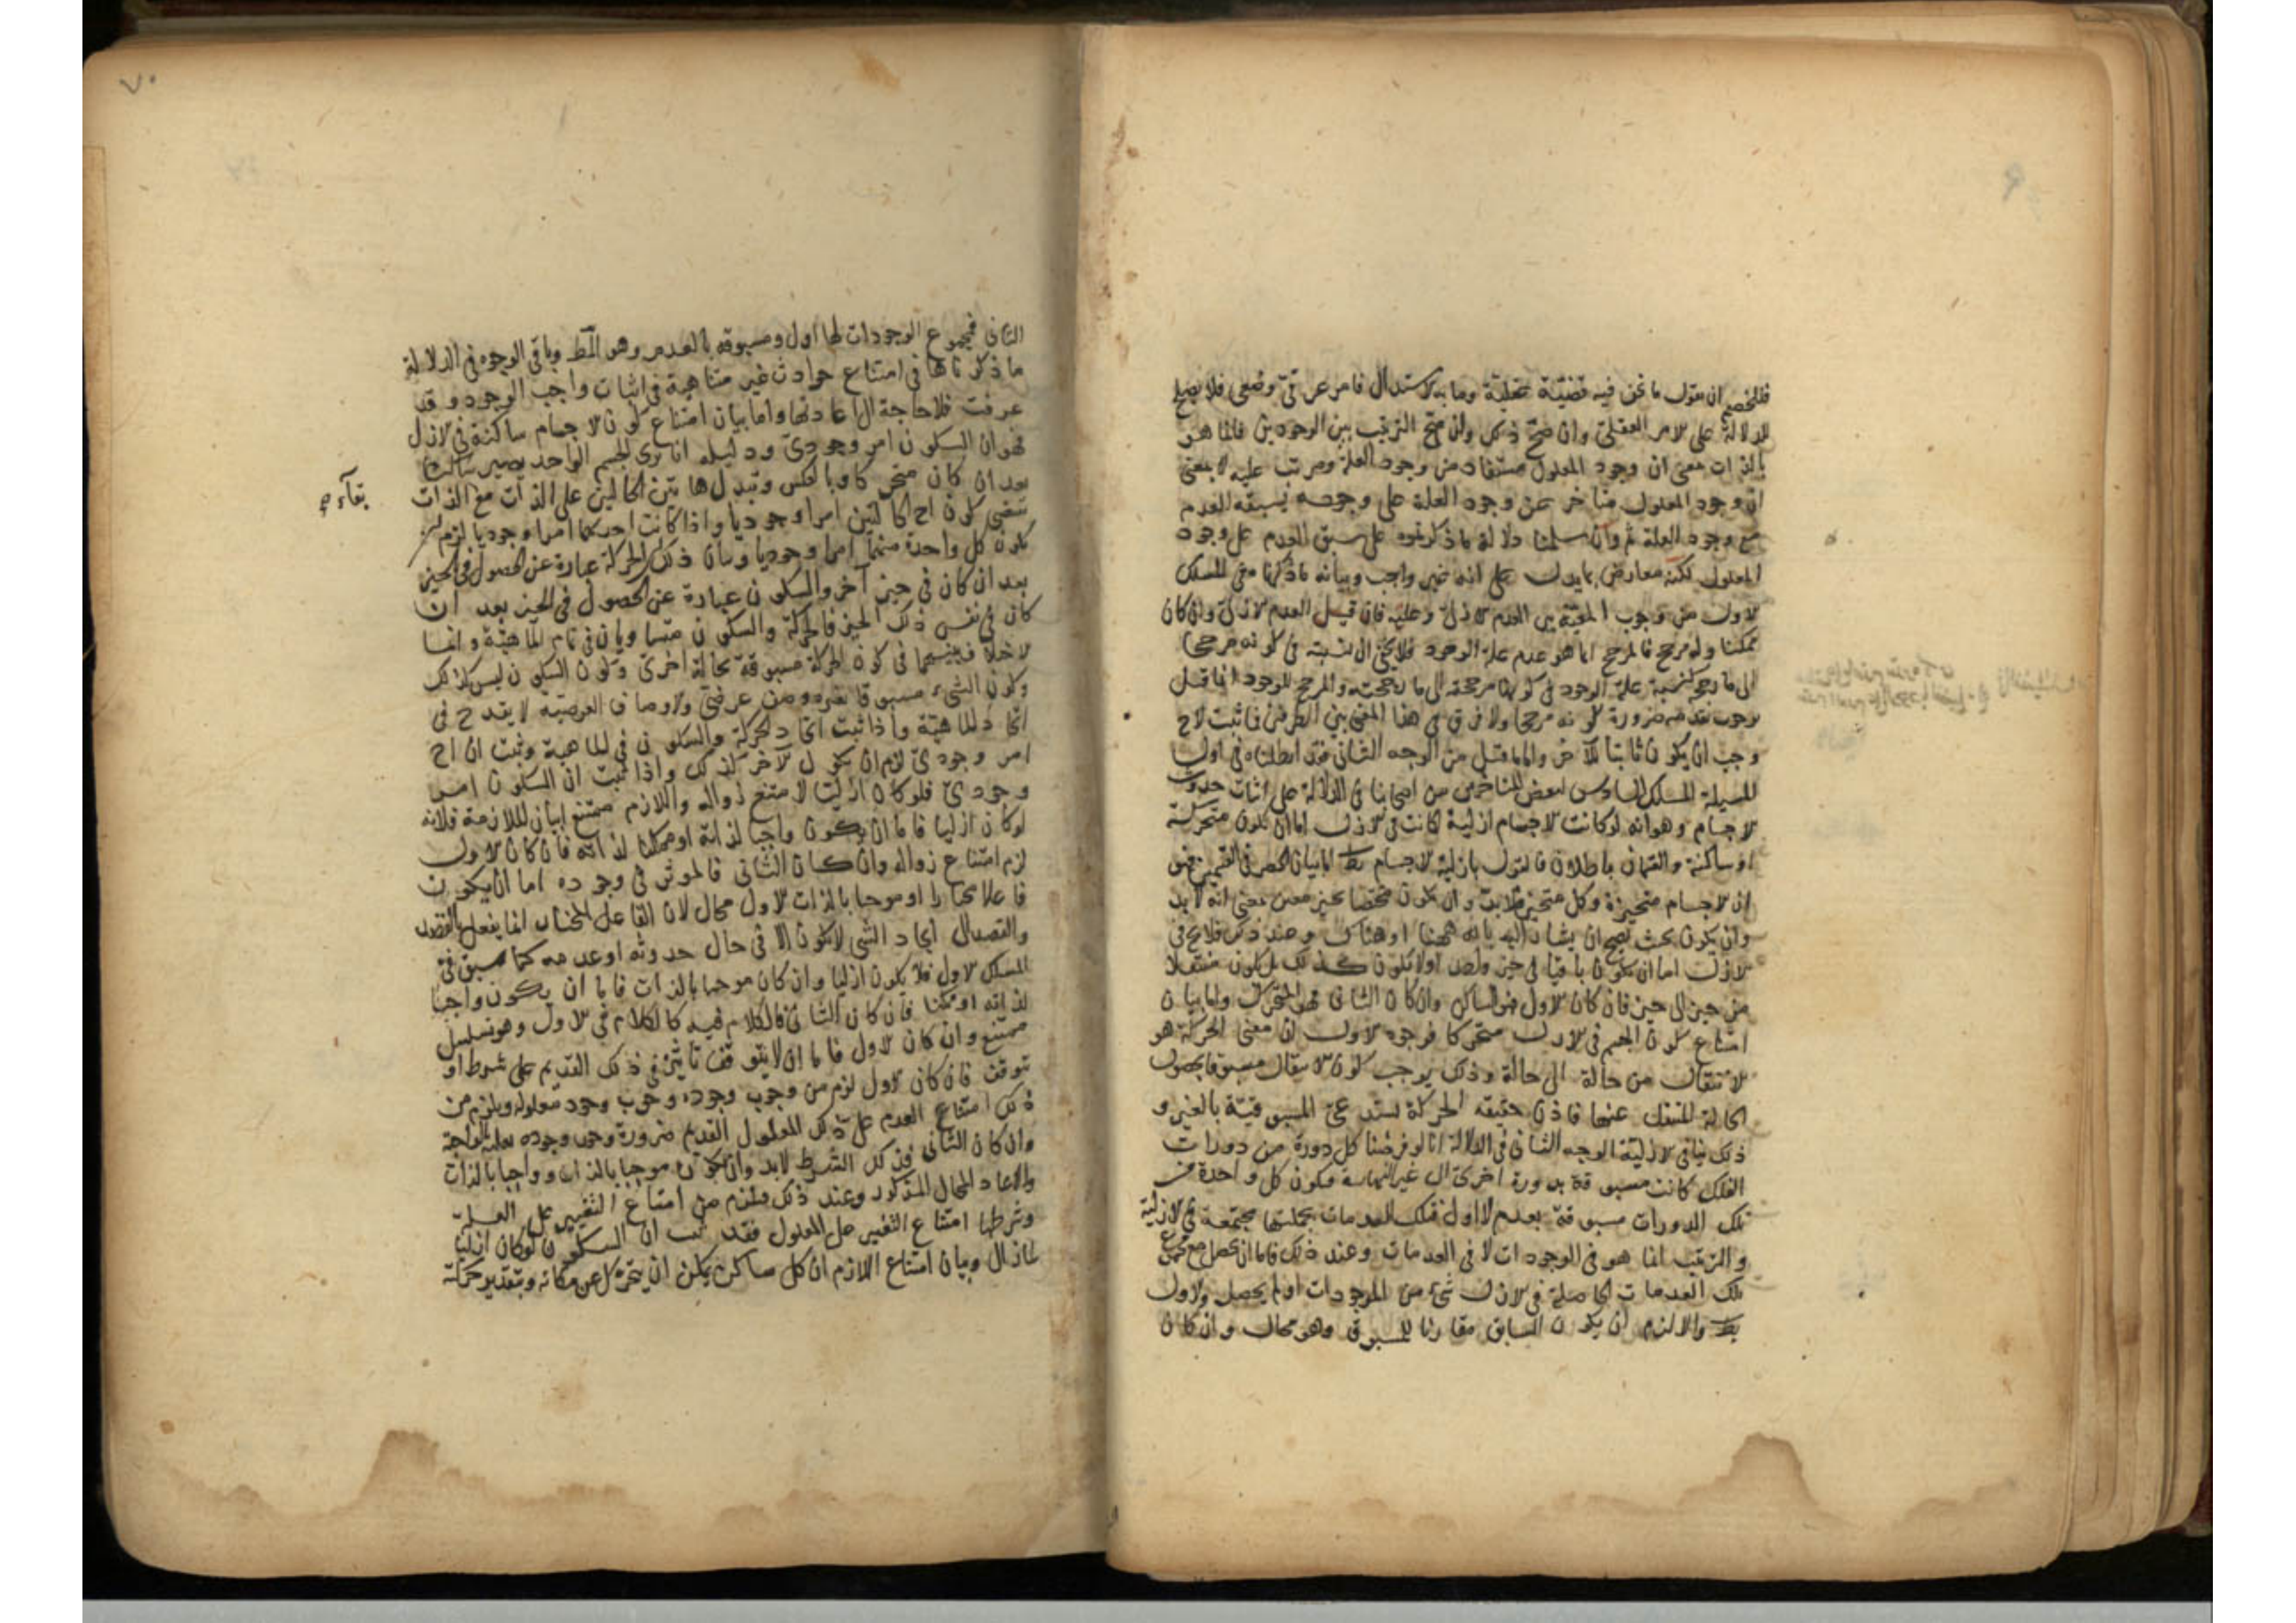 فللخصم ان يقول ما نحن فيه قضية عقلية وما به الاستدلال فامر عرفىّ وضعى فلا يصلح
للدلالة على الامر العقلىّ وان صحّ ذلك وان صح الترتيب بين الوجودين فانما هو
بالذات بمعنى ان وجود المعلول مستفاد من وجود العلة ومرتب عليه لا بمعنى
انّ وجود المعلول متأخر عن وجود العلة على وجه يسبقه العدم
مع وجود العلة ثم وان سلمنا دلالة ما ذكرتموه على سبق العدم على وجود
المعلول لكنه معارض بما يدل على انه غير واجب وبيانه ما ذكرنا فى المسلك
الاول من وجوب المعية بين العدم الازلىّ وعليه فان قيل العدم الازلىّ وان كان
ممكنا وله مرجح فالمرجح انما هو عدم علة الوجود فلا يخفى ان نسبته فى كونه مرجحا
الى ما رجحه كنسبة علة الوجود فى كونها مرجحة الى ما رجحته والمرجح للوجود انما قيل
بوجوب تقدمه ضرورة كونه مرجحا ولا فرق فى هذا المعنى بين الطرفين فما ثبت لاح
وجب ان يكون ثابتا للآخر واما ما قيل من الوجه الثانى فقد ابطلناه فى اول
المسيلة المسلك السادس لبعض المتاخرين من اصحابنا فى الدلالة على اثبات حدوث
الاجسام وهو انه لو كانت الاجسام ازلية لكانت فى الازل اما ان تكون متحركة
او ساكنة والقسمان باطلان فالقول بازلية الاجسام بط اما بيان الحصر فى القسمين فهو
ان الاجسام متحيزة وكل متحيز فلا بدّ وان يكون مختصا بحيز معين بمعنى انه لا بد
وان يكون بحيث يصح ان يشار اليه بانه ههنا او هناك وعند ذلك فلا يخ فى
الازل اما ان يكون باقيا فى حيز واحد او لا يكون كذلك بل يكون منتقلا
من حيز الى حيز فان كان الاول فهو الساكن وان كان الثانى فهو المتحرك واما بيان
امتناع كون الجسم فى الازل متحركا فوجوه الاول ان معنى الحركة هو
الانتقال من حالة الى حالة وذلك يوجب كون الانتقال مسبوقا بحصول
الحالة المنتقل عنها فاذن حقيقة الحركة تستدعى المسبوقيّة بالغير و
ذلك ينافى الازلية الوجه الثانى فى الدلالة انا لو فرضنا كل دورة من دورات
الفلك كانت مسبوقة بدورة اخرى الى غير النهاية فيكون كل واحدة من
تلك الدورات مسبوقة بعدم لا اول فتلك العدمات بجملتها مجتمعة فى الازلية
والترتيب انما هو فى الوجودات لا فى العدمات وعند ذلك فاما ان يحصل مع مجموع
تلك العدمات الحاصلة فى الازل شىء من الموجودات او لم يحصل والاول
بط والا لزم ان يكون السابق مقارنا للمسبوق وهو محال وان كان
٧٠
الثانى فمجموع الوجودات لها اول ومسبوقة بالعدم وهو المط وباقى الوجوه فى الدلالة
ما ذكرناها فى امتناع حوادث غير متناهية فى اثبات واجب الوجود وقد
عرفت فلا حاجة الى اعادتها واما بيان امتناع كون الاجسام ساكنة فى الازل
فهو ان السكون امر وجودىّ ودليله انا نرى الجسم الواحد يصير ساكنا
بعد ان كان متحركا وبالعكس وتبدل هاتين الحالتين على الذات مع الذات
بقآء ص
تقتضى كون اح الحالتين امرا وجوديا واذا كانت احدىهما امرا وجوديا لزم ان
تكون كل واحدة منهما امرا وجوديا وبيان ذلك ان الحركة عبارة عن الحصول فى الحيز
بعد ان كان فى حيز آخر والسكون عبارة عن الحصول فى الحيز بعد ان
كان فى نفس ذلك الحيز فالحركة والسكون متساويان فى تمام الماهية وانما
الاختلاف بينهما فى كون الحركة مسبوقة بحالة اخرى وكون السكون ليس كذلك
وكون الشىء مسبوقا بغيره وصف عرضىّ والاوصاف العرضية لا يقدح فى
اتحاد الماهية واذا ثبت اتحاد الحركة والسكون فى الماهية وثبت ان اح
امر وجودىّ لزم ان يكون الآخر كذلك واذا ثبت ان السكون امر
وجودىّ فلو كان ازليا لامتنع زواله واللازم ممتنع بيان الملازمة فلانه
لو كان ازليا فاما ان يكون واجبا لذاته او ممكنا لذاته فان كان الاول
لزم امتناع زواله وان كان الثانى فالموثر فى وجوده اما ان يكون
فاعلا مختارا او موجبا بالذات الاول محال لان الفاعل المختار انما يفعل بالقصد
والقصد الى ايجاد الشى لا يكون الا فى حال حدوثه او عدمه كما سبق فى
المسلك الاول فلا يكون ازليا وان كان موجبا بالذات فاما ان يكون واجبا
لذاته او ممكنا فان كان الثانى فالكلام فيه كالكلام فى الاول وهو تسلسل
ممتنع وان كان الاول فاما ان لا يتوقف تاثيره فى ذلك القديم على شرط او
يتوقف فان كان الاول لزم من وجوب وجوده وجوب وجود معلوله ويلزم من
ذلك امتناع العدم على ذلك المعلول القديم ضرورة وجوب وجوده بعلته الواجبة
وان كان الثانى فذلك الشرط لا بد وان يكون موجبا بالذات وواجبا بالذات
والا عاد المحال المذكور وعند ذلك فيلزم من امتناع التغيير على العلة
وشرطها امتناع التغيير على المعلول فقد ثبت ان السكون لو كان ازليا
لما زال وبيان امتناع اللازم ان كل ساكن يمكن ان يتحرك عن مكانه وبتقدير حركته